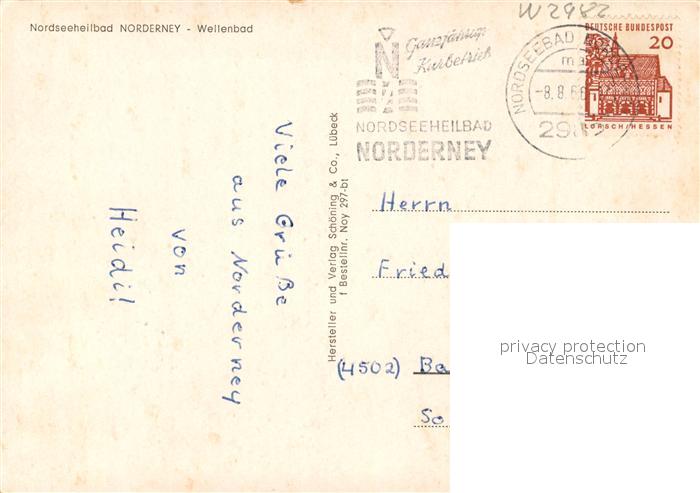 W2982
Nordseeheilbad NORDERNEY - Wellenbad
Ganzjährig
Kurbetrieb
N
NORDSEEHEILBAD
NORDERNEY
NORDSEEBAD
-8.8.66
DEUTSCHE BUNDESPOST
20
LORSCH/HESSEN
Viele Grüße
aus Norderney
von
Heidi!
Hersteller und Verlag Schöning & Co., Lübeck
f Bestellnr. Noy 297-bt
Herrn
Fried
(4502) Ba
So
privacy protection
Datenschutz